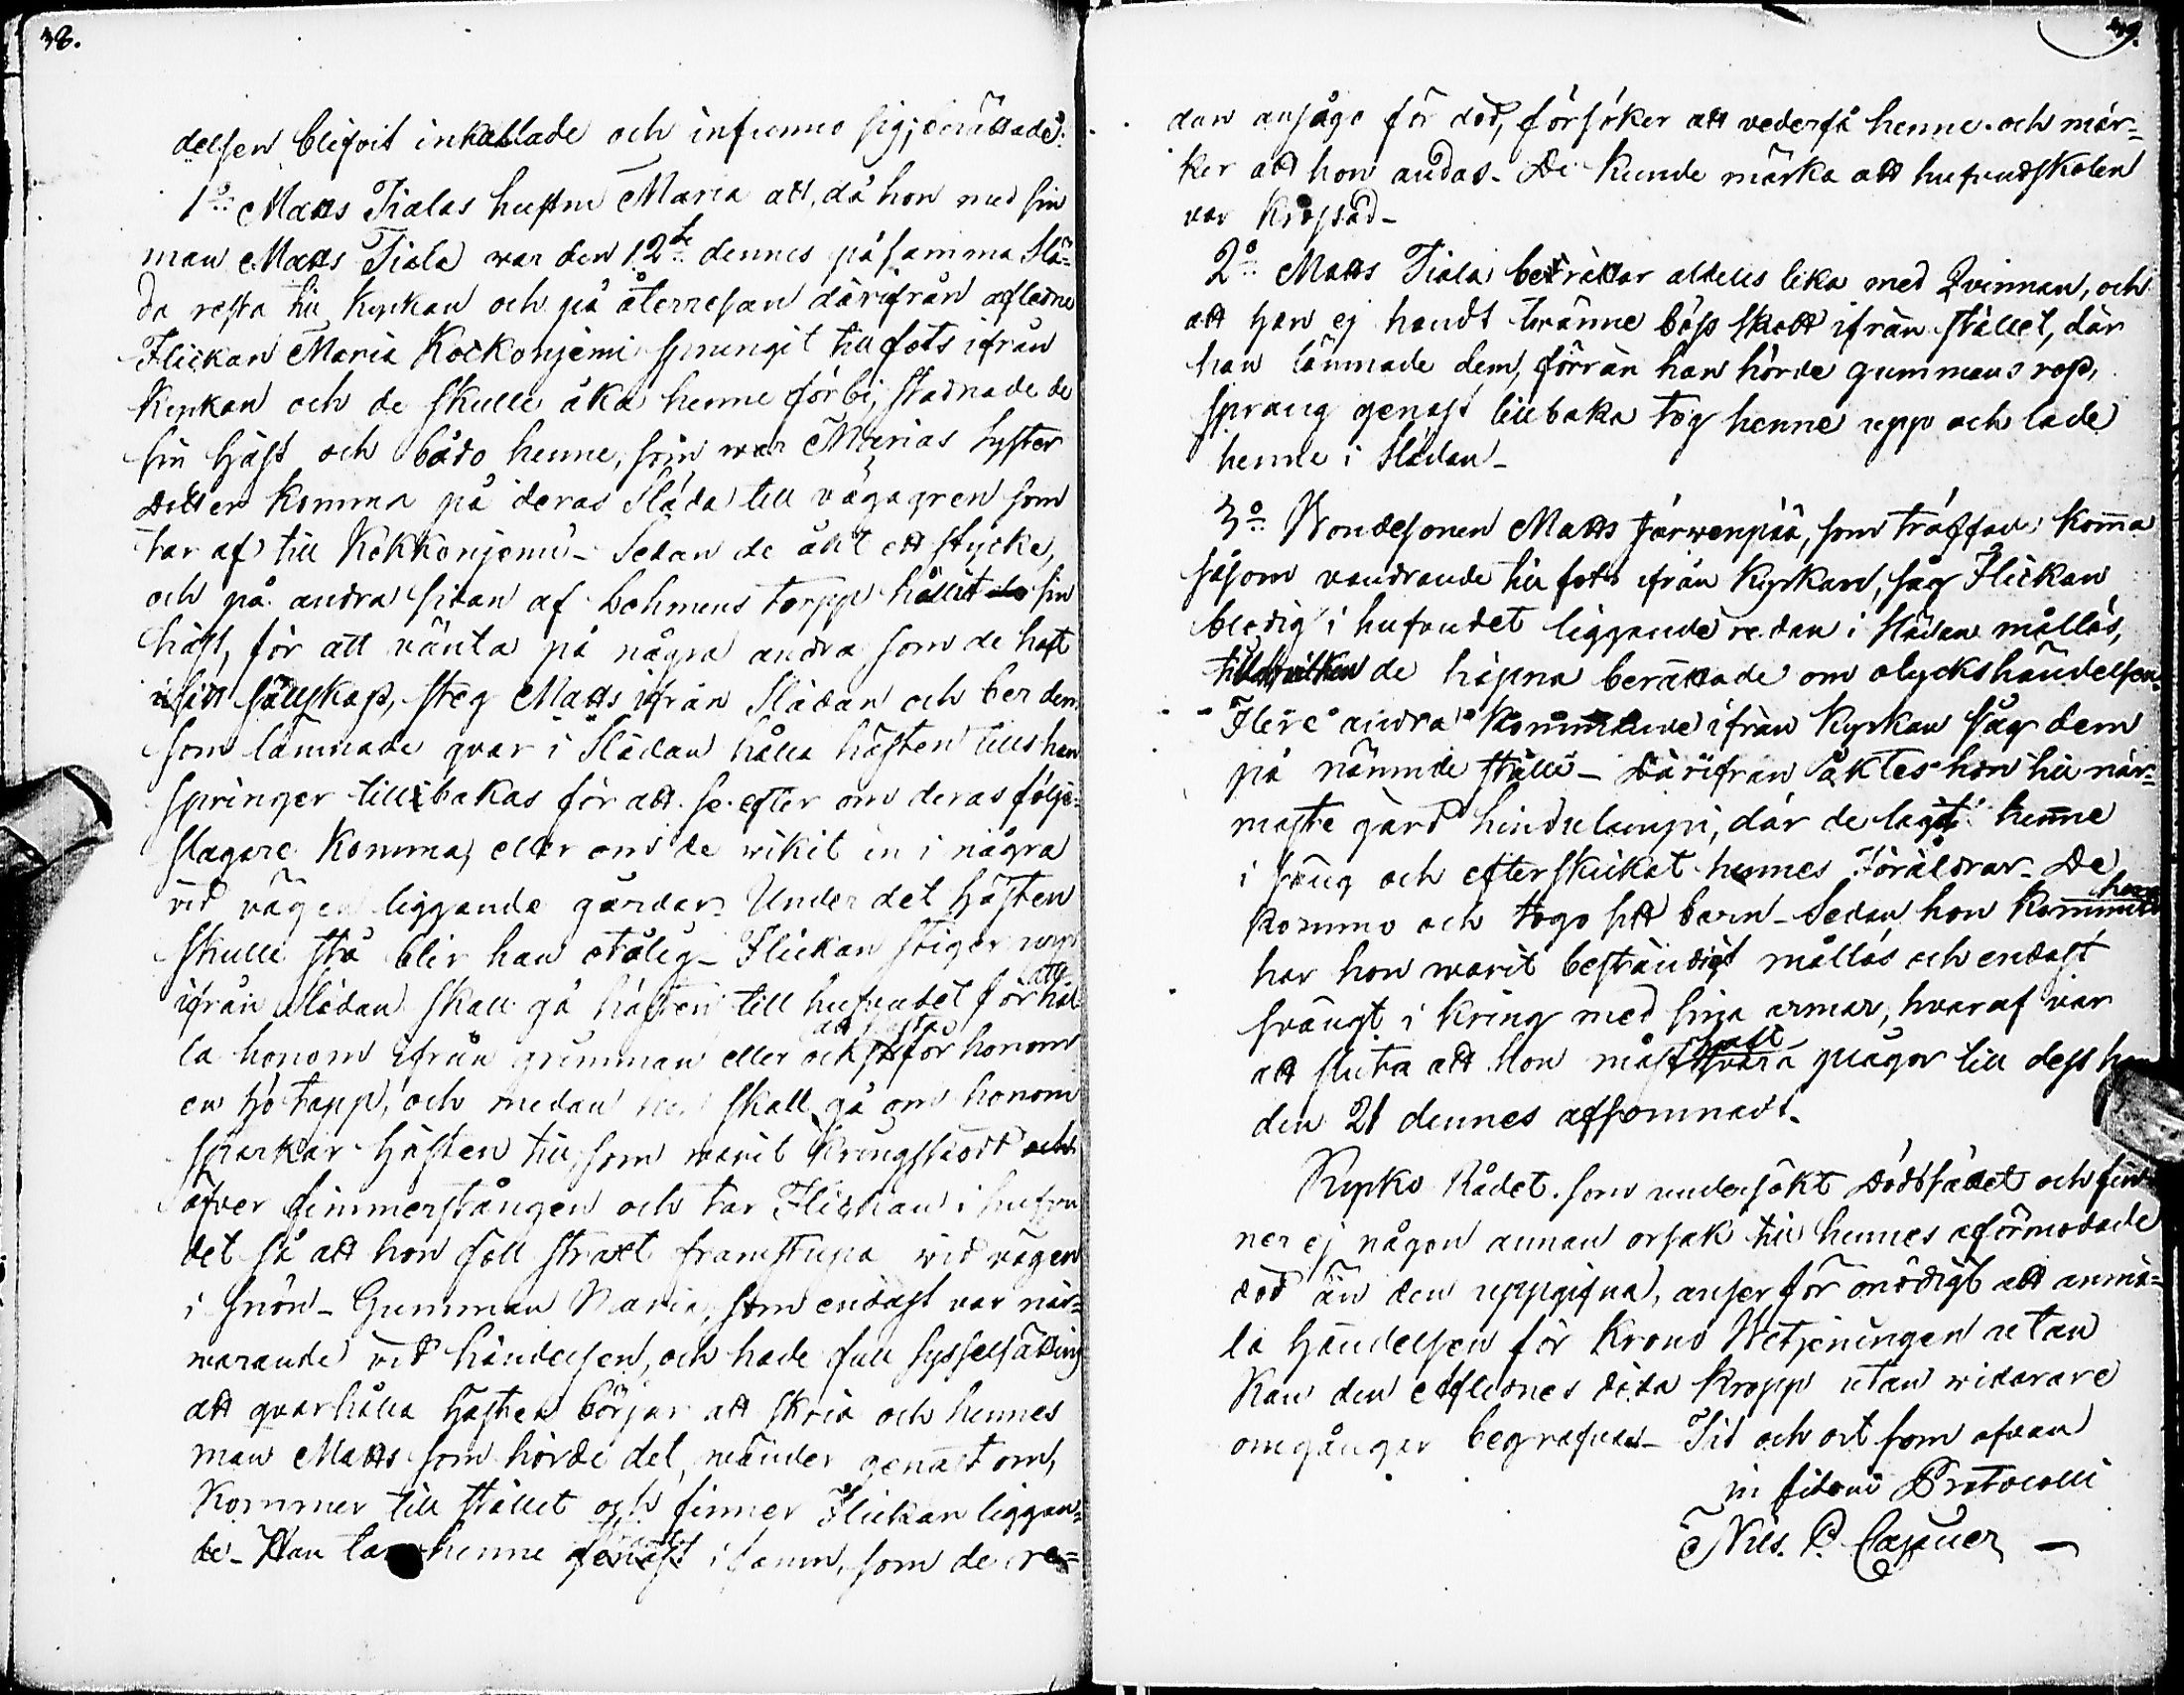 38.
delsen blifvit inkallade och infunno sig, berättade:
1:o Matts Tialas hustru Maria att, då hon med sin
man Matts Tiala var den 12:te dennes på samma Slä=
da resta till kyrkan och på återresan därifrån afledne
Flickan Maria Kockonjemi sprungit till fots ifrån
Kyrkan och de skulle åka henne förbi, stadnade de
sin Häst och bådo henne, som war Marias Syster
dotter komma på deras Släda till vägagren som
tar af till Kokkonjemi – Sedan de åkt ett stycke,
och på andra sidan af bohmens torpp hållit sin
häst, för att vänta på några andra som de haft
i sitt sällskap, steg Matts ifrån Slädan och ber dem
som lämnade qvar i Slädan hålla hästen tills han
springer tillbakas för att se efter om deras följe=
slagare komma, eller om de vikit in i några
vid vägen liggande gårdar. Under det Hästen
skulle stå blir han otålig – Flickan stiger upp
ifrån Slädan skall gå hästen till hufvudet för att hål
la honom ifrån gumman eller ock att kasta för honom
en hötapp, och medan hon skall gå om honom
sparkar Hästen till, som varit kringskodt
öfver fimmerstången och tar Flickan i hufvu
det så att hon föll straxt framstupa vid vägen
i snön – Gumman Maria, som endast var när=
varande vid händelsen, och hade full sysselsättning
att qvarhålla Hästen börjar att skria och hennes
man Matts som hörde det, vänder genast om,
Kommer till stället och finner Flickan liggan=
de – Han tar henne genast i famn, som de re=
39.
dan ansågo för död, försöker att vederfå henne och mär=
ker att hon andas – De kunde märka att hufvudskålen
var krossad –
2:o Matts Tiala berättar aldeles lika med Qvinnan, och
att han ej hundt tvänne böss skott ifrån stället, där
han lämnade dem, förrän han hörde gummans rop,
sprang genast tillbaka tog henne upp och lade
henne i Slädan –
3:o Bondesonen Matts Järwenpää, som träffade komma
såsom vandrande till fots ifrån Kyrkan, såg Flickan
blodig i hufvudet liggande redan i slädan mållös,
till hvilken de häpna berättade om olyckshändelsen.
Flere andra kommande ifrån Kyrkan såg dem
på nämnde ställe – Därifrån åktes hon till när=
maste gård hindulampi, där de lagt henne
i säng och efterskickat hennes Föräldrar – De
kommo och togo sitt barn – Sedan hon kommit hem
har hon warit beständigt mållös och endast
svängt i kring med sina armar, hvaraf var
att sluta att hon måst haft svåra plågor till dess hon
den 21 dennes afsomnadt.
Kyrko Rådet som undersökt Dödssättet och fin=
ner ej någon annan orsak till hennes oförmodade
död än den uppgifna, anser för onödigt att anmä=
la Händelsen för Krono Betjeningen utan
Kan den Aflidnes döda kropp utan widarare
omgångar begrafvas – Tid och ort som ofvan
in fidem Protocolli
Nils. P. Cajaner –